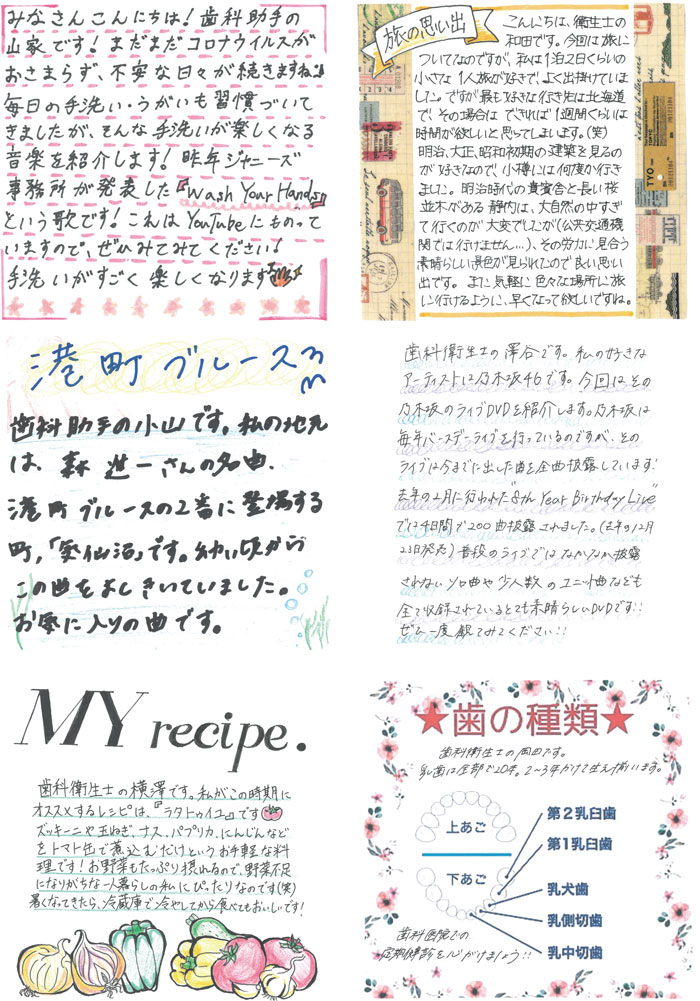 みなさんこんにちは!歯科助手の
山家です!まだまだコロナウイルスが
おさまらず、不安な日々が続きますね。
毎日の手洗い・うがいも習慣づいて
きましたが、そんな手洗いが楽しくなる
音楽を紹介します!昨年ジャニーズ
事務所が発表した『Wash Your Hands』
という歌です!これはYouTubeにものって
いますので、ぜひみてみてください!
手洗いがすごく楽しくなります
旅の思い出
こんにちは、衛生士の
和田です。今回は旅に
ついてなのですが、私は1泊2日くらいの
小さな1人旅が好きで、よく出掛けていま
した。ですが最も好きな行き先は北海道
で、その場合はできれば1週間くらいは
時間が欲しいと思ってしまいます。(笑)
明治、大正、昭和初期の建築を見るの
が好きなので、小樽には何度か行き
ました。明治時代の貴賓舎と長い桜
並木がある静内は、大自然の中すぎ
て行くのが大変でしたが(公共交通機
関では行けません…)、その労力に見合う
素晴らしい景色が見られたので良い思い
出です。また気軽に色々な場所に旅
に行けるように、早くなって欲しいですね。
TYO
港町ブルース
歯科助手の小山です。私の地元
は、森進一さんの名曲、
港町ブルースの2番に登場する
町、「気仙沼」です。幼い頃から
この曲をよくきいていました。
お気に入りの曲です。
歯科衛生士の澤谷です。私の好きな
アーティストは乃木坂46です。今回はその
乃木坂のライブDVDを紹介します。乃木坂は
毎年バースデーライブを行っているのですが、その
ライブは今までに出した曲を全曲披露しています!
去年の2月に行われた"8th Year Birthday Live"
では4日間で200曲披露されました。(去年の12月
23日発売)普段のライブではなかなか披露
されないソロ曲や少人数のユニット曲なども
全て収録されているとても素晴らしいDVDです!!
ぜひ一度観てみてください!!
MY recipe.
歯科衛生士の横澤です。私がこの時期に
オススメするレシピは、『ラタトゥイユ』です
ズッキーニや玉ねぎ、ナス、パプリカ、にんじんなど
をトマト缶で煮込むだけというお手軽な料
理です!お野菜もたっぷり摂れるので、野菜不足
になりがちな一人暮らしの私にぴったりなのです(笑)
暑くなってきたら、冷蔵庫で冷やしてから食べてもおいしいです!
★歯の種類★
歯科衛生士の岡田です。
乳歯は全部で20本。2~3年かけて生え揃います。
上あご
下あご
第2乳臼歯
第1乳臼歯
乳犬歯
乳側切歯
乳中切歯
歯科医院での
定期健診を心がけましょう!!